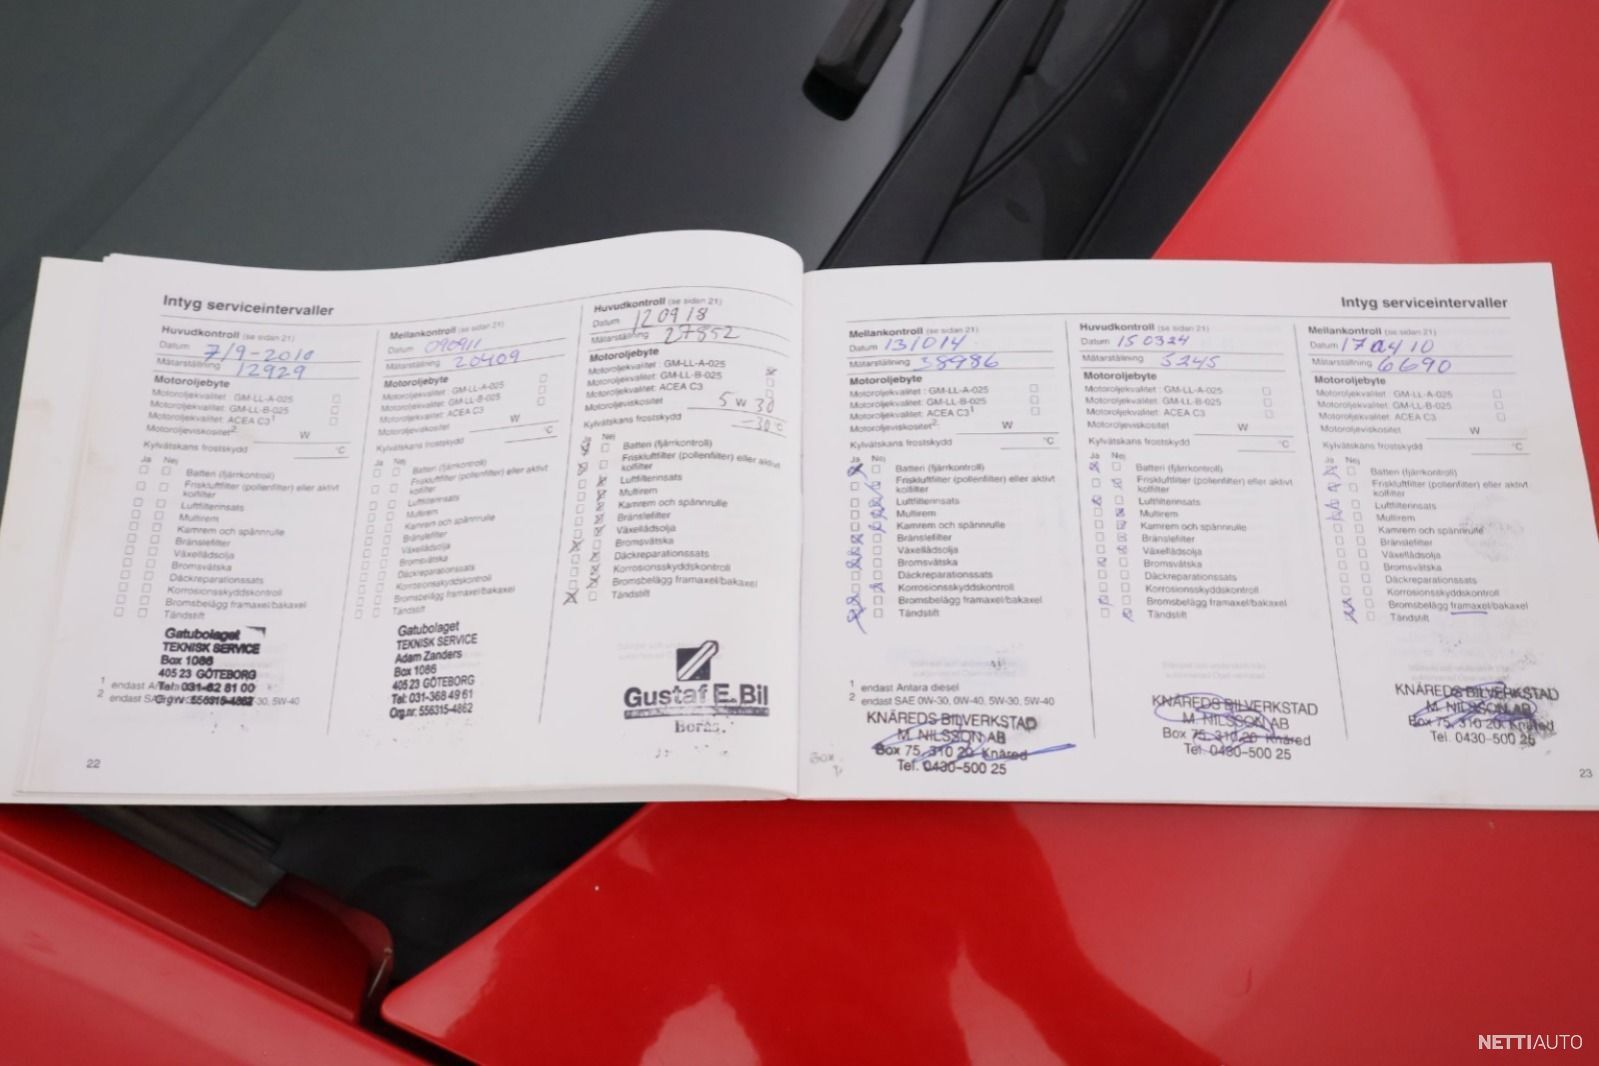 Intyg serviceintervaller
Huvudkontroll (se sidan 21)
Datum 7/9-2010
Mätarställning 12929
Motoroljebyte
Motoroljekvalitet: GM-LL-A-025
Motoroljekvalitet: GM-LL-B-025
Motoroljekvalitet: ACEA C3¹
Motoroljeviskositet²: W
Kylvätskans frostskydd °C
Ja Nej
Batteri (fjärrkontroll)
Friskluftfilter (pollenfilter) eller aktivt
kolfilter
Luftfilterinsats
Multirem
Kamrem och spännrulle
Bränslefilter
Växellådsolja
Bromsvätska
Däckreparationssats
Korrosionsskyddskontroll
Bromsbelägg framaxel/bakaxel
Tändstift
Gatubolaget
TEKNISK SERVICE
Box 1086
405 23 GÖTEBORG
Tel: 031-62 81 00
Org.nr: 556315-4862
¹ endast
² endast 5W-40
22
Mellankontroll (se sidan 21)
Datum 090911
Mätarställning 20409
Motoroljebyte
Motoroljekvalitet: GM-LL-A-025
Motoroljekvalitet: GM-LL-B-025
Motoroljekvalitet: ACEA C3
Motoroljeviskositet W
Kylvätskans frostskydd °C
Ja Nej
Batteri (fjärrkontroll)
Friskluftfilter (pollenfilter) eller aktivt
kolfilter
Luftfilterinsats
Multirem
Kamrem och spännrulle
Bränslefilter
Växellådsolja
Bromsvätska
Däckreparationssats
Korrosionsskyddskontroll
Bromsbelägg framaxel/bakaxel
Tändstift
Gatubolaget
TEKNISK SERVICE
Adam Zanders
Box 1086
405 23 GÖTEBORG
Tel: 031-368 49 61
Org.nr: 556315-4862
Huvudkontroll (se sidan 21)
Datum 120918
Mätarställning 27852
Motoroljebyte
Motoroljekvalitet: GM-LL-A-025
Motoroljekvalitet: GM-LL-B-025
Motoroljekvalitet: ACEA C3
Motoroljeviskositet 5 W 30
Kylvätskans frostskydd -30°C
Ja Nej
Batteri (fjärrkontroll)
Friskluftfilter (pollenfilter) eller aktivt
kolfilter
Luftfilterinsats
Multirem
Kamrem och spännrulle
Bränslefilter
Växellådsolja
Bromsvätska
Däckreparationssats
Korrosionsskyddskontroll
Bromsbelägg framaxel/bakaxel
Tändstift
Gustaf E.Bil
Borås.
Intyg serviceintervaller
Mellankontroll (se sidan 21)
Datum 131014
Mätarställning 38986
Motoroljebyte
Motoroljekvalitet: GM-LL-A-025
Motoroljekvalitet: GM-LL-B-025
Motoroljekvalitet: ACEA C3¹
Motoroljeviskositet²: W
Kylvätskans frostskydd °C
Ja Nej
Batteri (fjärrkontroll)
Friskluftfilter (pollenfilter) eller aktivt
kolfilter
Luftfilterinsats
Multirem
Kamrem och spännrulle
Bränslefilter
Växellådsolja
Bromsvätska
Däckreparationssats
Korrosionsskyddskontroll
Bromsbelägg framaxel/bakaxel
Tändstift
¹ endast Antara diesel
² endast SAE 0W-30, 0W-40, 5W-30, 5W-40
KNÄREDS BILVERKSTAD
M. NILSSON AB
Box 75, 310 20 Knäred
Tel. 0430-500 25
Huvudkontroll (se sidan 21)
Datum 150324
Mätarställning 5245
Motoroljebyte
Motoroljekvalitet: GM-LL-A-025
Motoroljekvalitet: GM-LL-B-025
Motoroljekvalitet: ACEA C3
Motoroljeviskositet W
Kylvätskans frostskydd °C
Ja Nej
Batteri (fjärrkontroll)
Friskluftfilter (pollenfilter) eller aktivt
kolfilter
Luftfilterinsats
Multirem
Kamrem och spännrulle
Bränslefilter
Växellådsolja
Bromsvätska
Däckreparationssats
Korrosionsskyddskontroll
Bromsbelägg framaxel/bakaxel
Tändstift
KNÄREDS BILVERKSTAD
M. NILSSON AB
Box 75, 310 20 Knäred
Tel. 0430-500 25
Mellankontroll (se sidan 21)
Datum 170410
Mätarställning 6690
Motoroljebyte
Motoroljekvalitet: GM-LL-A-025
Motoroljekvalitet: GM-LL-B-025
Motoroljekvalitet: ACEA C3
Motoroljeviskositet W
Kylvätskans frostskydd °C
Ja Nej
Batteri (fjärrkontroll)
Friskluftfilter (pollenfilter) eller aktivt
kolfilter
Luftfilterinsats
Multirem
Kamrem och spännrulle
Bränslefilter
Växellådsolja
Bromsvätska
Däckreparationssats
Korrosionsskyddskontroll
Bromsbelägg framaxel/bakaxel
Tändstift
KNÄREDS BILVERKSTAD
M. NILSSON AB
Box 75, 310 20 Knäred
Tel. 0430-500 25
23
NETTIAUTO